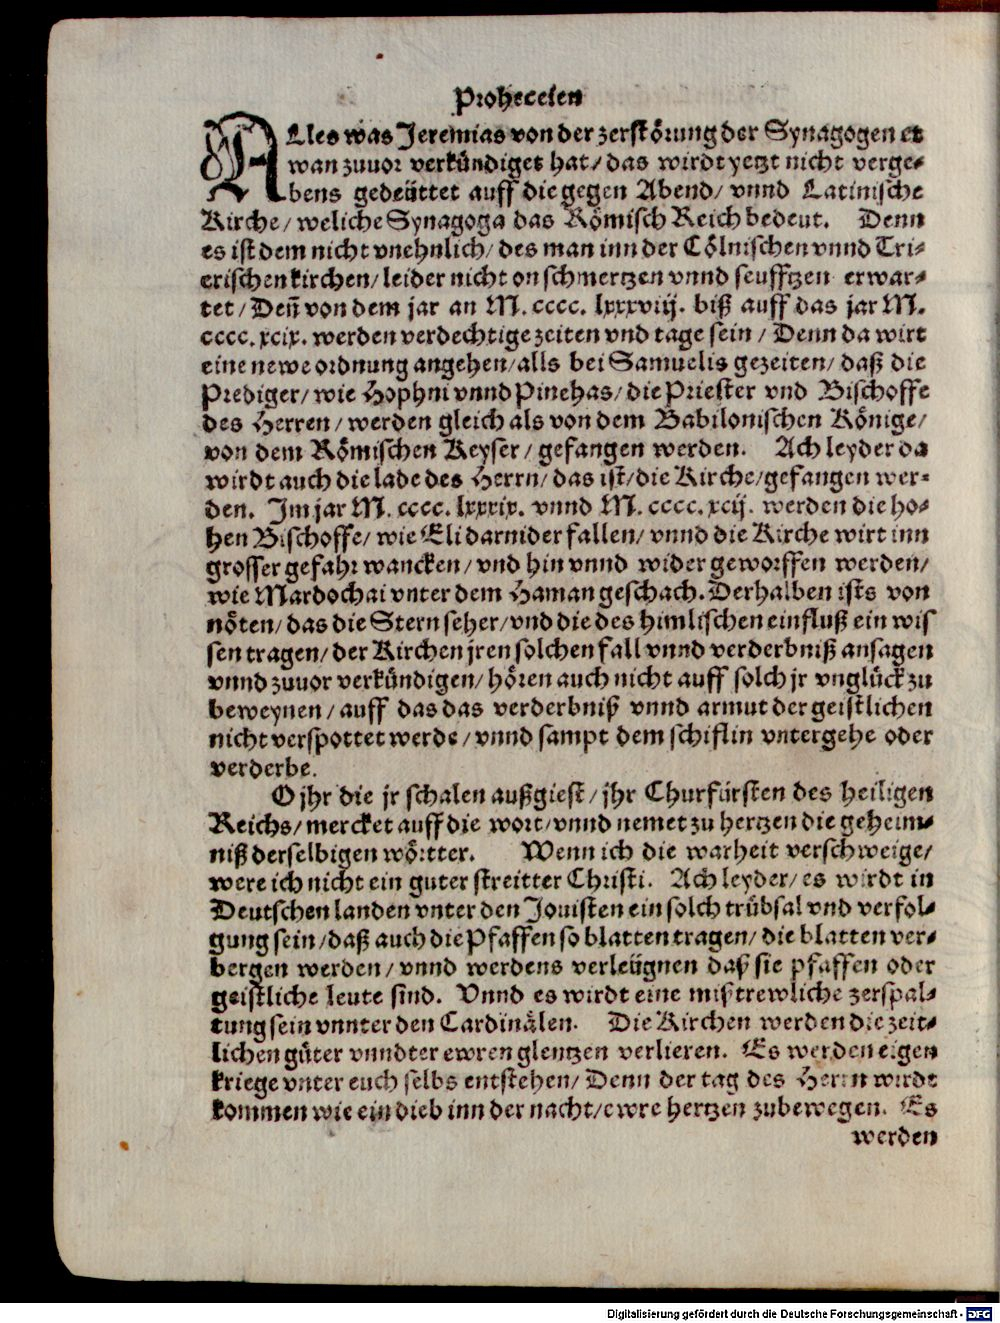 Proheceien
ALles was Jeremias von der zerstörung der Synagogen et
wan zuuor verkündiget hat/ das wirdt yetzt nicht verge-
bens gedeüttet auff die gegen Abend/ vnnd Latinische
Kirche/ weliche Synagoga das Römisch Reich bedeut. Denn
es ist dem nicht vnehnlich/ des man inn der Cölnischen vnnd Tri-
erischen kirchen/ leider nicht on schmertzen vnnd seufftzen erwar-
tet/ Deñ von dem jar an M. cccc. lxxxviij. biß auff das jar M.
cccc. xcix. werden verdechtige zeiten vnd tage sein/ Denn da wirt
eine newe ordnung angehen/ alls bei Samuelis gezeiten/ daß die
Prediger/ wie Hophni vnnd Pinehas/ die Priester vnd Bischoffe
des Herren/ werden gleich als von dem Babilonischen Könige/
von dem Römischen Keyser/ gefangen werden. Ach leyder da
wirdt auch die lade des Herrn/ das ist/ die Kirche/ gefangen wer-
den. Im jar M. cccc. lxxxix. vnnd M. cccc. xcij. werden die ho-
hen Bischoffe/ wie Eli darnider fallen/ vnnd die Kirche wirt inn
grosser gefahr wancken/ vnd hin vnnd wider geworffen werden/
wie Mardochai vnter dem Haman geschach. Derhalben ists von
nöten/ das die Stern seher/ vnd die des himlischen einfluß ein wis
sen tragen/ der Kirchen jren solchen fall vnnd verderbniß ansagen
vnnd zuuor verkündigen/ hören auch nicht auff solch jr vnglück zu
beweynen/ auff das das verderbniß vnnd armut der geistlichen
nicht verspottet werde/ vnnd sampt dem schiflin vntergehe oder
verderbe.
O jhr die jr schalen außgiest/ jhr Churfürsten des heiligen
Reichs/ mercket auff die wort/ vnnd nemet zu hertzen die geheim-
niß derselbigen wörtter. Wenn ich die warheit verschweige/
were ich nicht ein guter streitter Christi. Ach leyder/ es wirdt in
Deutschen landen vnter den Jouisten ein solch trübsal vnd verfol-
gung sein/ daß auch die Pfaffen so blatten tragen/ die blatten ver-
bergen werden/ vnnd werdens verleügnen daß sie pfaffen oder
geistliche leute sind. Vnnd es wirdt eine mißtrewliche zerspal-
tung sein vnnter den Cardinälen. Die Kirchen werden die zeit-
lichen güter vnndter ewren glentzen verlieren. Es werden eigen
kriege vnter euch selbs entstehen/ Denn der tag des Herrn wirdt
kommen wie ein dieb inn der nacht/ ewre hertzen zubewegen. Es
werden
Digitalisierung gefördert durch die Deutsche Forschungsgemeinschaft - DFG